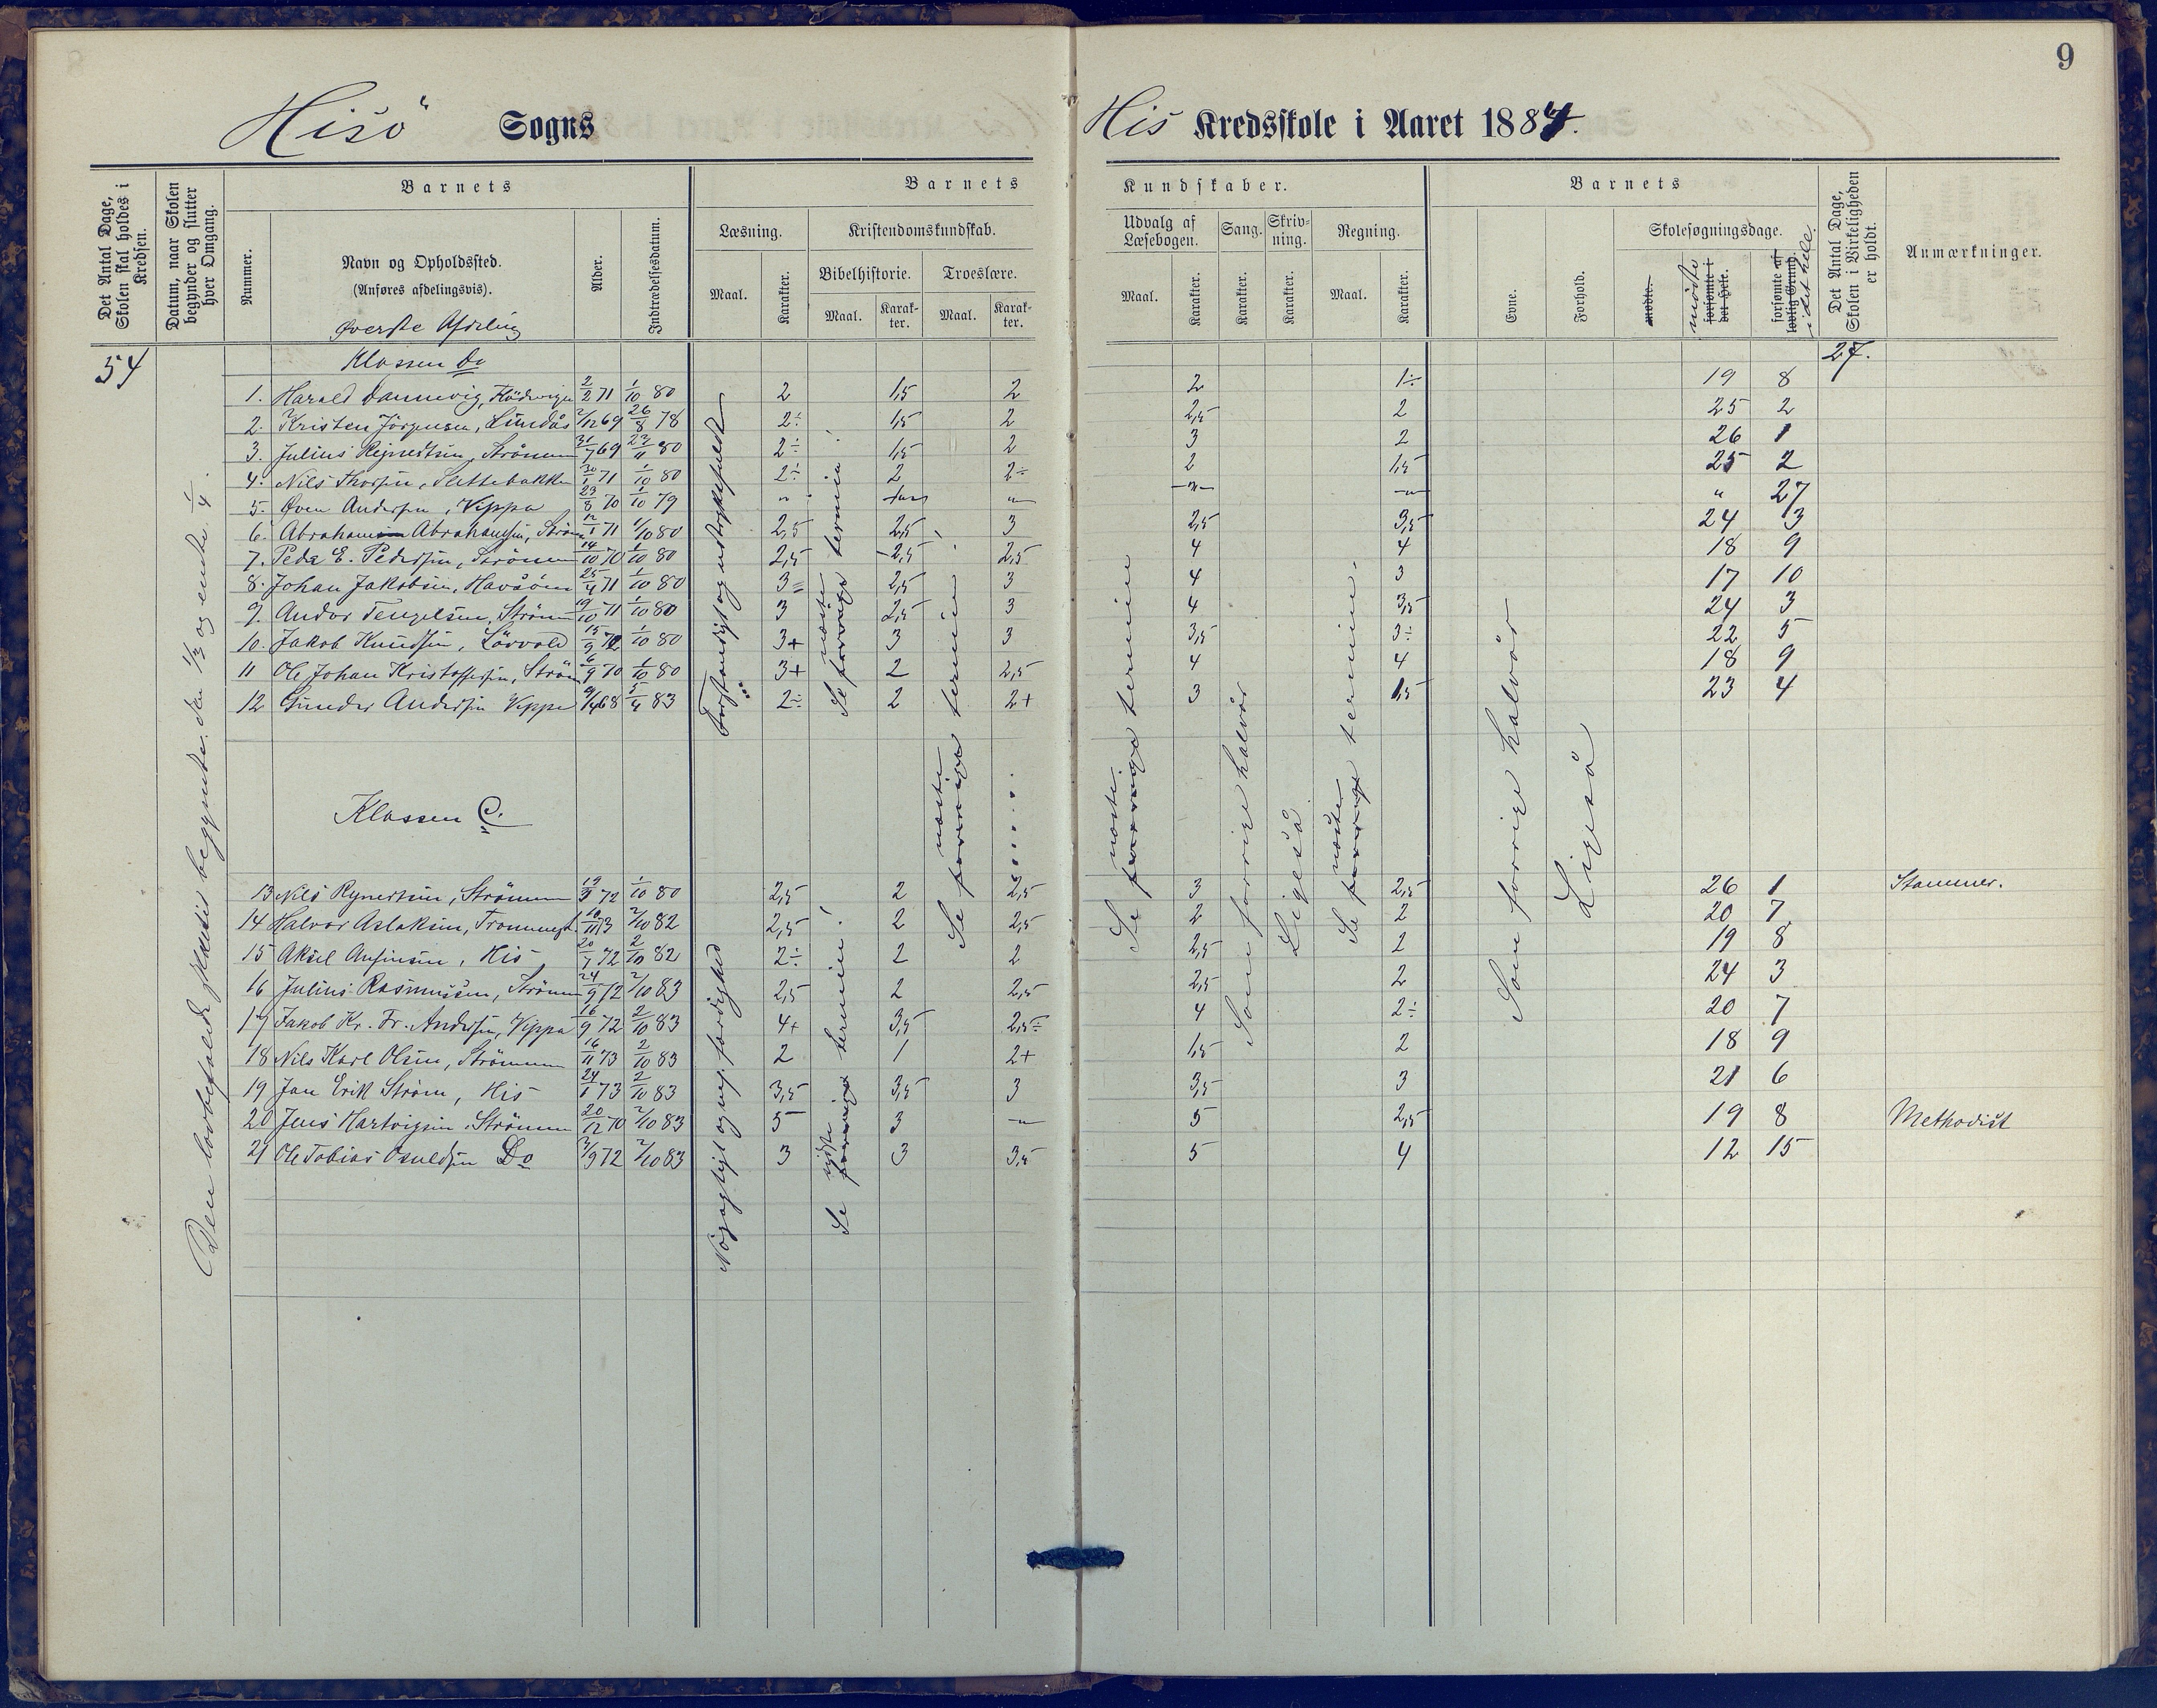 9
Hisö Sogns
His Kredsskole i Aaret 1884.
Det Antal Dage, Skolen skal holdes i Kredsen.
Datum, naar Skolen begynder og slutter hver Omgang.
Barnets
Nummer.
Navn og Opholdssted.
(Anføres afdelingsvis).
Øverste Afdeling
Alder.
Indtrædelsesdatum.
Barnets
Læsning.
Maal.
Karakter.
Kristendomskundskab.
Bibelhistorie.
Maal.
Karakter.
Troeslære.
Maal.
Karakter.
Kundskaber.
Udvalg af Læsebogen.
Maal.
Karakter.
Sang.
Karakter.
Skrivning.
Karakter.
Regning.
Maal.
Karakter.
Barnets
Evne.
Forhold.
Skolesøgningsdage.
mødte.
forsømte i det Hele.
mödte
forsømte af lovlig Grund.
i det hele.
Det Antal Dage, Skolen i Virkeligheden er holdt.
Anmærkninger.
54
Klassen D.
27.
1. Harald Dannevig, Flödevigen 2/2 71 1/10 80 2 1,5 2 2 1÷ 19 8
2. Kristen Jörgensen, Lundås 2/12 69 26/8 78 2÷ 1,5 2 2,5 2 25 2
3. Julius Rejnertsen, Strömmen 31/7 69 23/11 80 2÷ 1,5 2 3 2 26 1
4. Nils Thorsen, Slettebakken 30/1 71 1/10 80 2÷ 2 2÷ 2 1,5 25 2
5. Øven Andersen, Vippa 23/8 70 1/10 79 " " " " 27
6. Abraham Abrahamsen, Ström 12/1 71 1/10 80 2,5 2,5 3 2,5 3,5 24 3
7. Peder E. Pedersen, Strömmen 14/10 70 1/10 80 2,5 2,5 2,5 4 4 18 9
8. Johan Jakobsen, Havsöen 25/4 71 1/10 80 3= 2,5 3 4 3 17 10
9. Andor Tengelsen, Strömm 19/10 71 1/10 80 3 2,5 3 4 3,5 24 3
10. Jakob Knudsen, Lövvold 15/9 72 1/10 80 3+ 3 3 3,5 3÷ 22 5
11 Ole Johan Kristoffersen, Ström 6/9 70 1/10 80 3+ 2 2,5 4 4 18 9
12 Gunder Andersen Vippa 9/4 68 5/4 83 2÷ 2 2+ 3 1,5 23 4
Klassen C.
13 Nils Rejnertsen, Strömmen 19/3 72 1/10 80 2,5 2 2,5 3 2,5 26 1 Stammer.
14 Halvor Aslaksen, Trommest. 10/11 73 2/10 82 2,5 2 2,5 2 2 20 7
15 Aksel Anfinsen, His 20/7 72 2/10 82 2÷ 2 2 2,5 2 19 8
16 Julius Rasmussen, Strömmen 24/9 72 2/10 83 2,5 2 2,5 2,5 2 24 3
17 Jakob Kr. Fr. Andersen, Vippa 16/9 72 2/10 83 4+ 3,5 2,5÷ 4 2÷ 20 7
18 Nils Karl Olsen, Strömmen 16/11 73 2/10 83 2 1 2+ 1,5 2 18 9
19 Jan Erik Ström, His 24/1 73 2/10 83 3,5 3,5 3 3,5 3 21 6
20 Jens Hartvigsen, Strömmen 20/12 70 2/10 83 5 3 " 5 2,5 19 8 Methodist
21 Ole Tobias Osuldsen Do 3/9 72 2/10 83 3 3 3,5 5 4 12 15
Den lovbefalede skoletid begyndte den 1/3 og endte 1/4.
Forstandigt og udtryksfuldt
Nöjagtigt og nog. færdighed
Se næste forrige termin
Se sidste forrige termin!
Se næste forrige termin
Se næste forrige terminen
Som forrige halvår
Ligeså
Se næste forrige termin.
Som forrige halvår
Ligeså